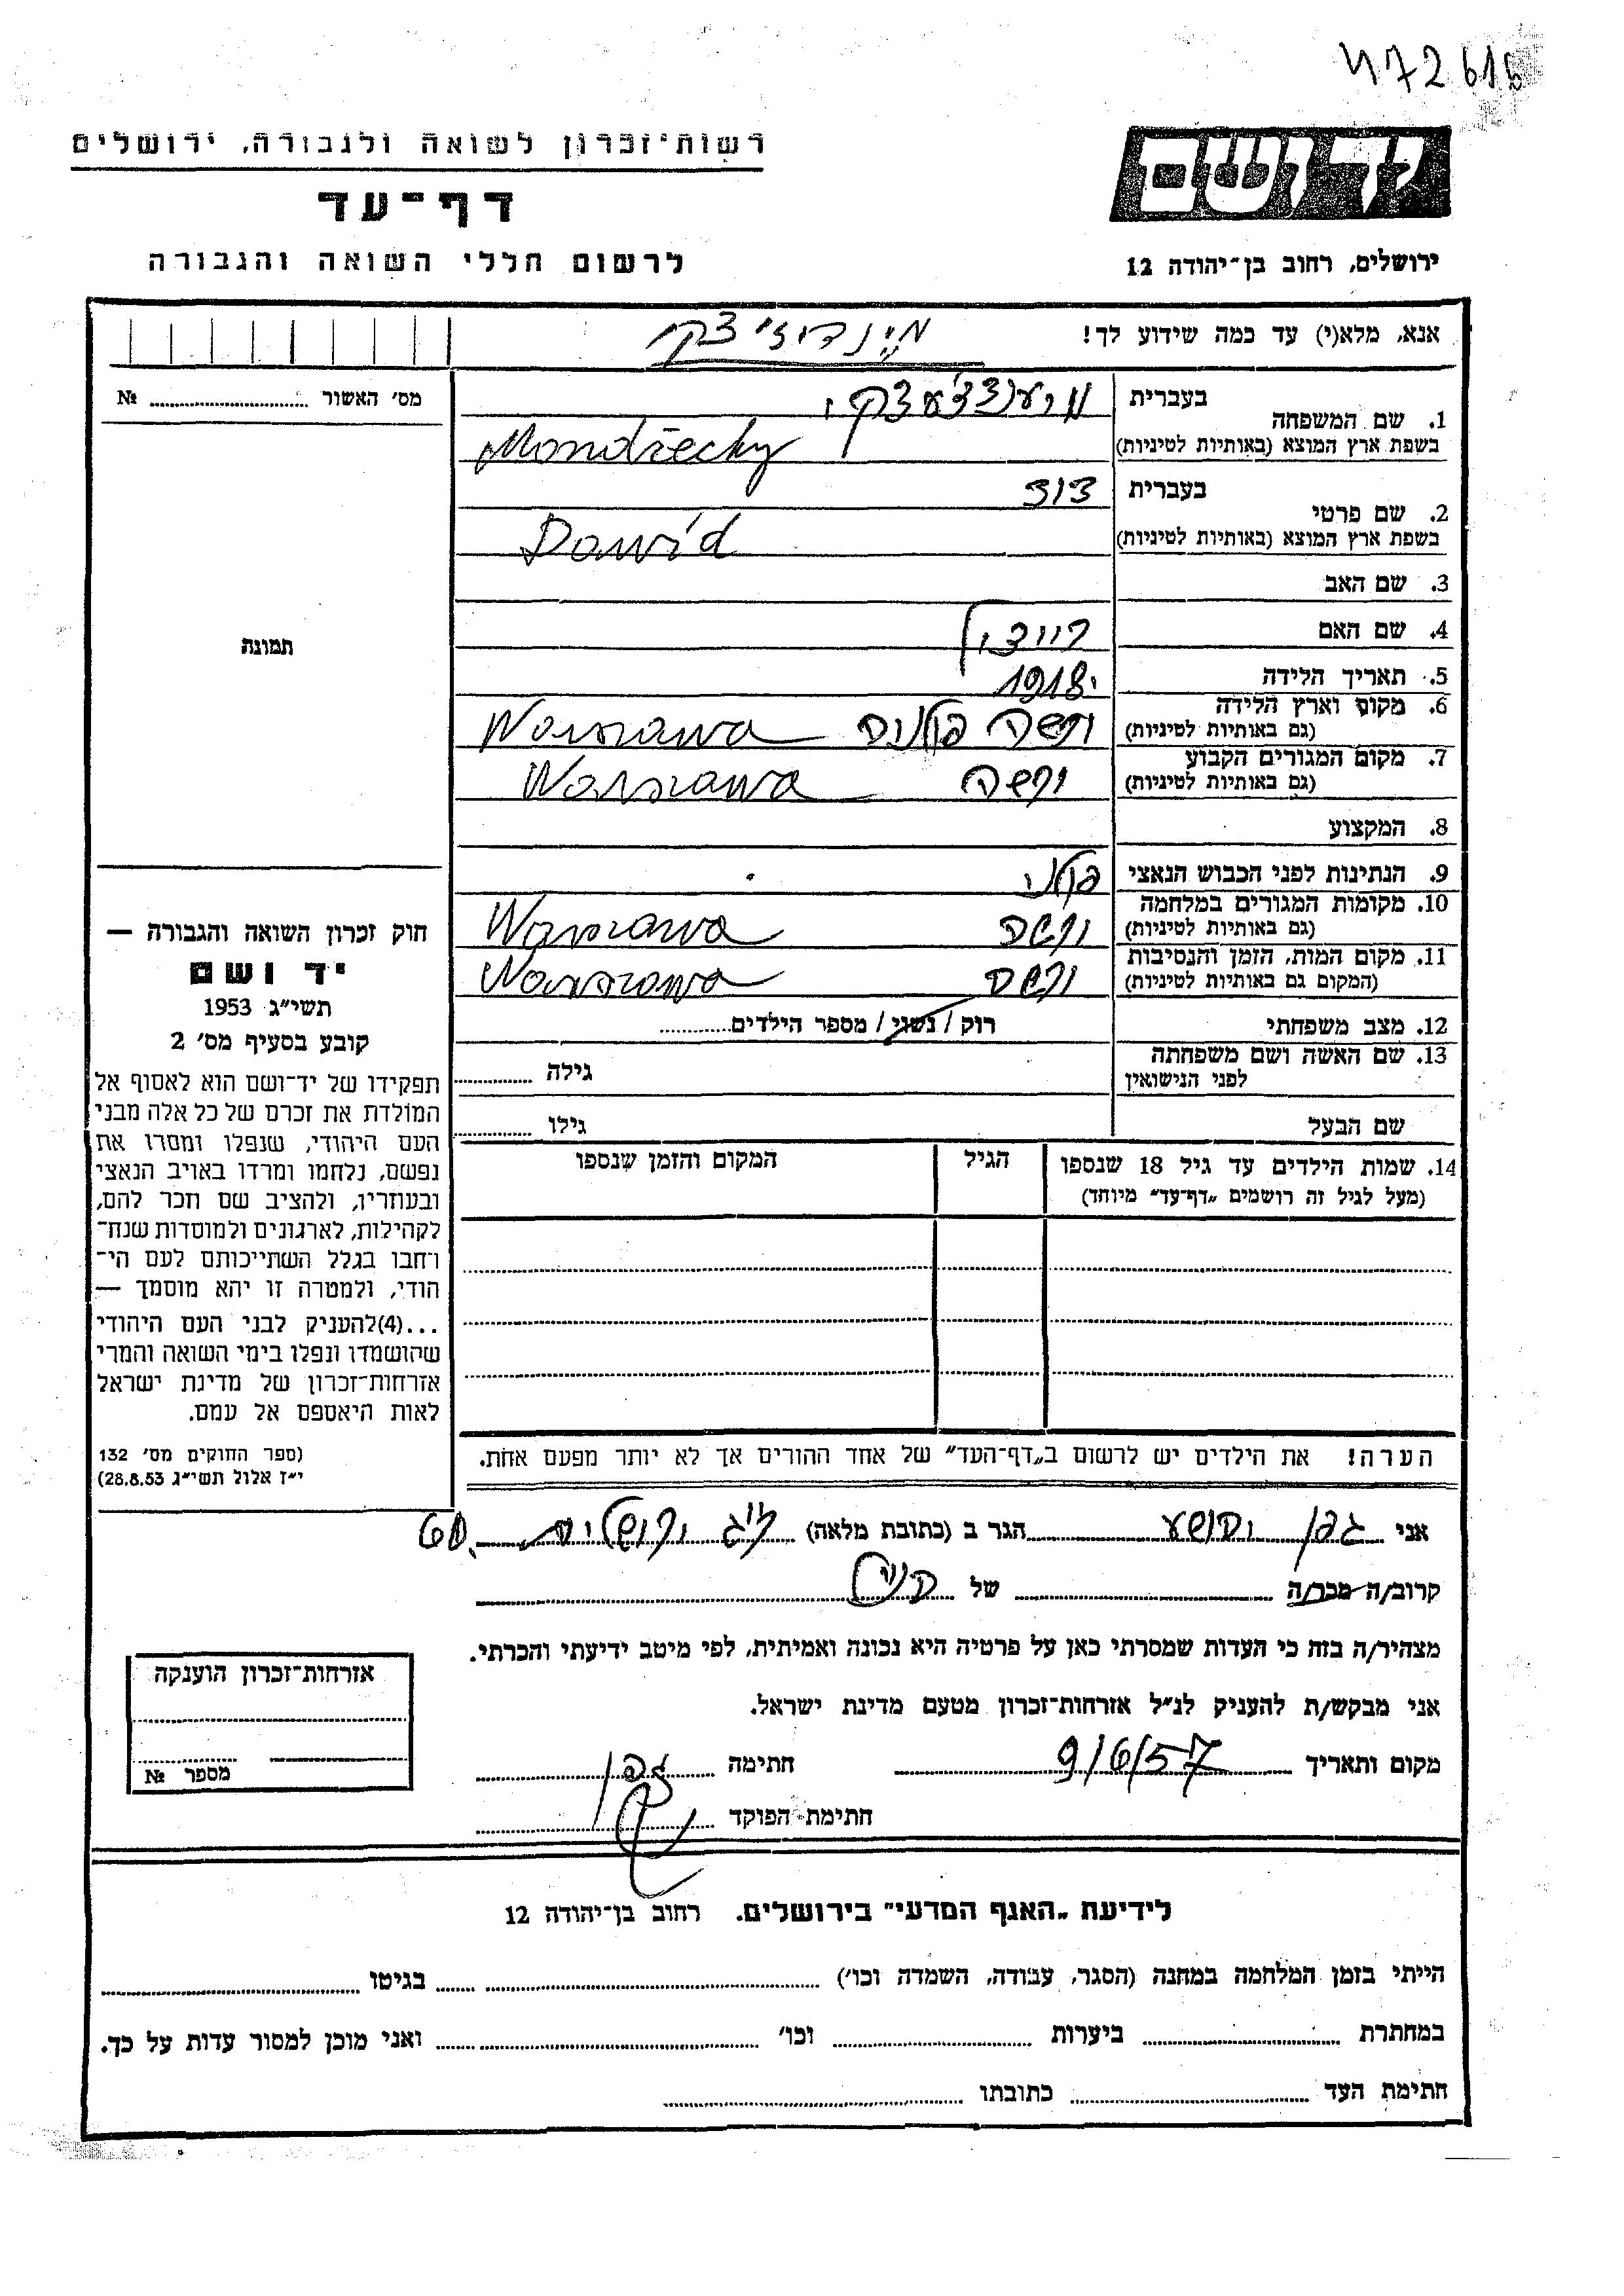 472615
רשות־זכרון לשואה ולגבורה, ירושלים
דף־עד
לרשום חללי השואה והגבורה
יד ושם
ירושלים, רחוב בן־יהודה 12
אנא, מלא(י) עד כמה שידוע לך!
מס׳ האשור № 
1. שם המשפחה
בעברית
בשפת ארץ המוצא (באותיות לטיניות)
2. שם פרטי
בעברית דוד
בשפת ארץ המוצא (באותיות לטיניות) Dawid
3. שם האב
4. שם האם
5. תאריך הלידה 1918
6. מקום וארץ הלידה
(גם באותיות לטיניות) ורשה פולניה Warszawa
7. מקום המגורים הקבוע
(גם באותיות לטיניות) ורשה Warszawa
8. המקצוע
9. הנתינות לפני הכבוש הנאצי פולני
10. מקומות המגורים במלחמה
(גם באותיות לטיניות) ורשה Warszawa
11. מקום המות, הזמן והנסיבות
(המקום גם באותיות לטיניות) ורשה Warszawa
12. מצב משפחתי רוק / נשוי / מספר הילדים
13. שם האשה ושם משפחתה
לפני הנישואין גילה
שם הבעל גילו
14. שמות הילדים עד גיל 18 שנספו
(מעל לגיל זה רושמים „דף־עד״ מיוחד)
הגיל
המקום והזמן שנספו
הערה! את הילדים יש לרשום ב„דף־העד״ של אחד ההורים אך לא יותר מפעם אחת.
תמונה
חוק זכרון השואה והגבורה —
יד ושם
תשי״ג 1953
קובע בסעיף מס׳ 2
תפקידו של יד־ושם הוא לאסוף אל
המולדת את זכרם של כל אלה מבני
העם היהודי, שנפלו ומסרו את
נפשם, נלחמו ומרדו באויב הנאצי
ובעוזריו, ולהציב שם וזכר להם,
לקהילות, לארגונים ולמוסדות שנח־
רבו בגלל השתייכותם לעם הי־
הודי, ולמטרה זו יהא מוסמך —
...(4)להעניק לבני העם היהודי
שהושמדו ונפלו בימי השואה והמרי
אזרחות־זכרון של מדינת ישראל
לאות היאספם אל עמם.
(ספר החוקים מס׳ 132
י״ז אלול תשי״ג 28.8.53)
אני גפן יהושע הגר ב (כתובת מלאה)
קרוב/ה מכר/ה של
מצהיר/ה בזה כי העדות שמסרתי כאן על פרטיה היא נכונה ואמיתית, לפי מיטב ידיעתי והכרתי.
אני מבקש/ת להעניק לנ״ל אזרחות־זכרון מטעם מדינת ישראל.
מקום ותאריך 9/6/57 חתימה גפן
חתימת־הפוקד
אזרחות־זכרון הוענקה
מספר №
לידיעת „האגף המדעי״ בירושלים, רחוב בן־יהודה 12
הייתי בזמן המלחמה במחנה (הסגר, עבודה, השמדה וכו׳) בגיטו
במחתרת ביערות וכו׳ ואני מוכן למסור עדות על כך.
חתימת העד כתובתו